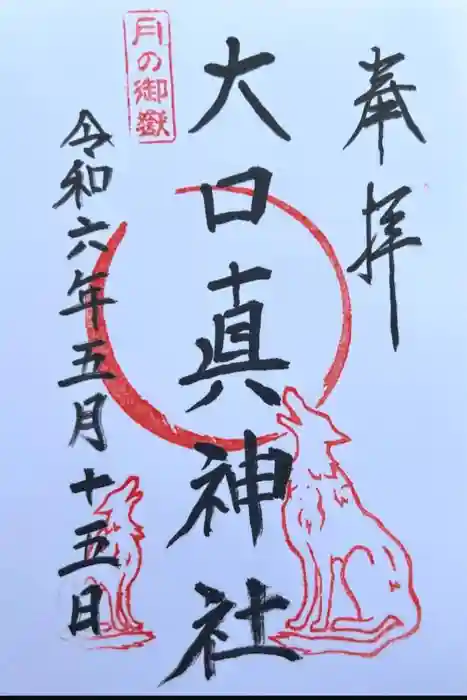 奉拝
月の御嶽
大口真神社
令和六年五月十五日